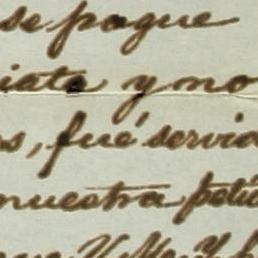 se pague
iata y no
s, fué servid
nuestra petic